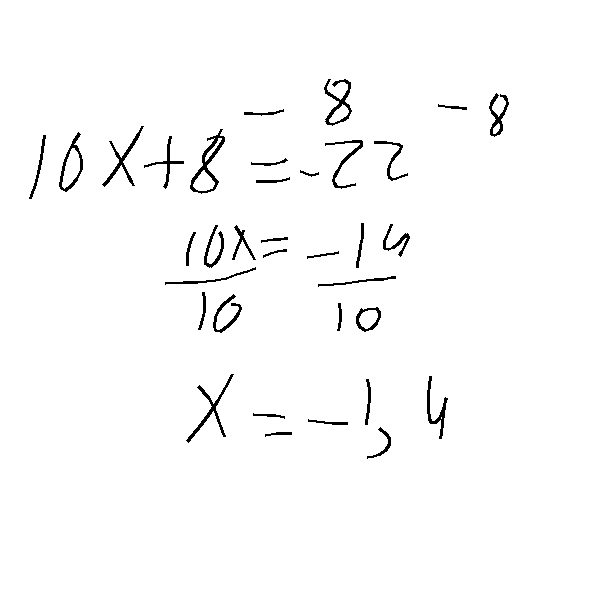 - 8 - 8
10x+8 = -22
10x = -14
10 10
x = -1,4